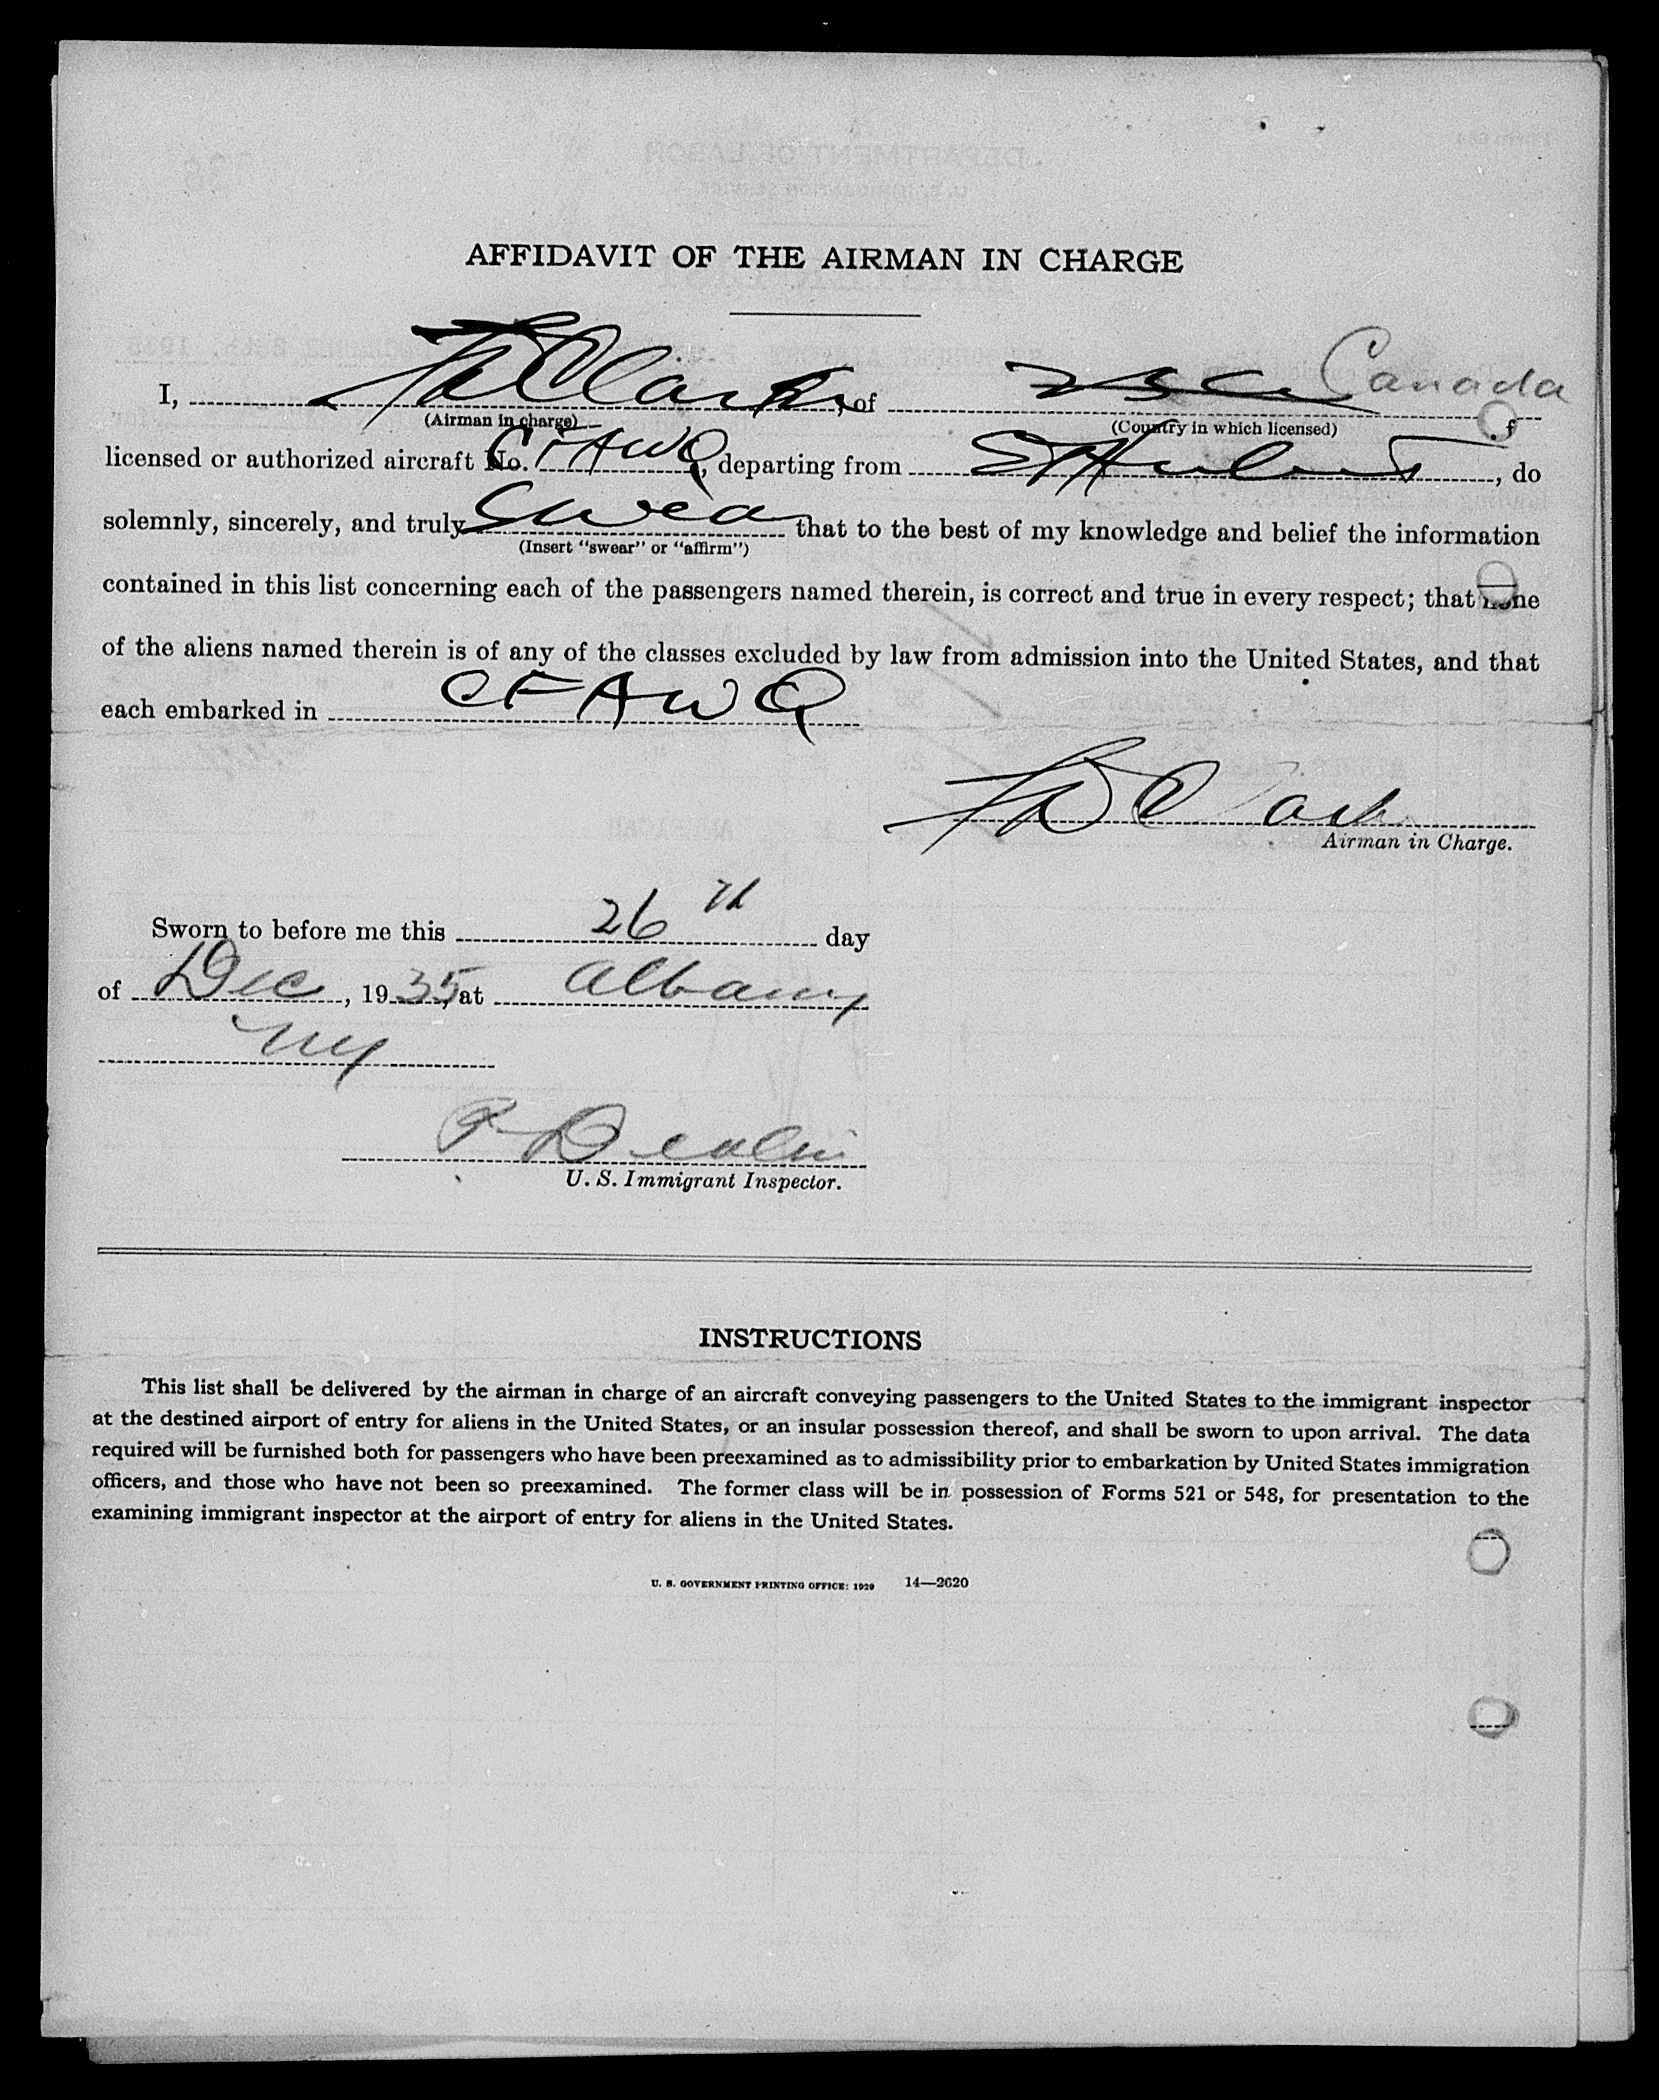 AFFIDAVIT OF THE AIRMAN IN CHARGE
I, Clark, of Canada
(Airman in charge) (Country in which licensed)
licensed or authorized aircraft No. CFAWQ, departing from St Hubert, do
solemnly, sincerely, and truly swear that to the best of my knowledge and belief the information
(Insert "swear" or "affirm")
contained in this list concerning each of the passengers named therein, is correct and true in every respect; that none
of the aliens named therein is of any of the classes excluded by law from admission into the United States, and that
each embarked in CFAWQ
Clark
Airman in Charge.
Sworn to before me this 26th day
of Dec, 1935, at Albany
NY
U. S. Immigrant Inspector.
INSTRUCTIONS
This list shall be delivered by the airman in charge of an aircraft conveying passengers to the United States to the immigrant inspector
at the destined airport of entry for aliens in the United States, or an insular possession thereof, and shall be sworn to upon arrival. The data
required will be furnished both for passengers who have been preexamined as to admissibility prior to embarkation by United States immigration
officers, and those who have not been so preexamined. The former class will be in possession of Forms 521 or 548, for presentation to the
examining immigrant inspector at the airport of entry for aliens in the United States.
U. S. GOVERNMENT PRINTING OFFICE: 1929 14—2620